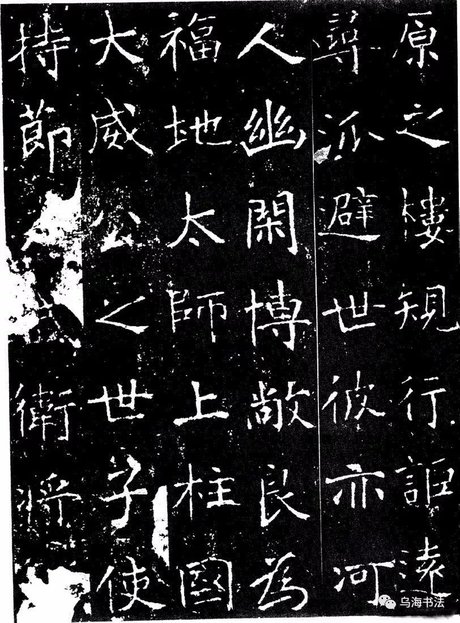 原之樓規行詎遠
尋泒避世彼亦河
人幽閑博敞良為
福地太師上柱國
大威公之世子使
持節衛將
乌海书法